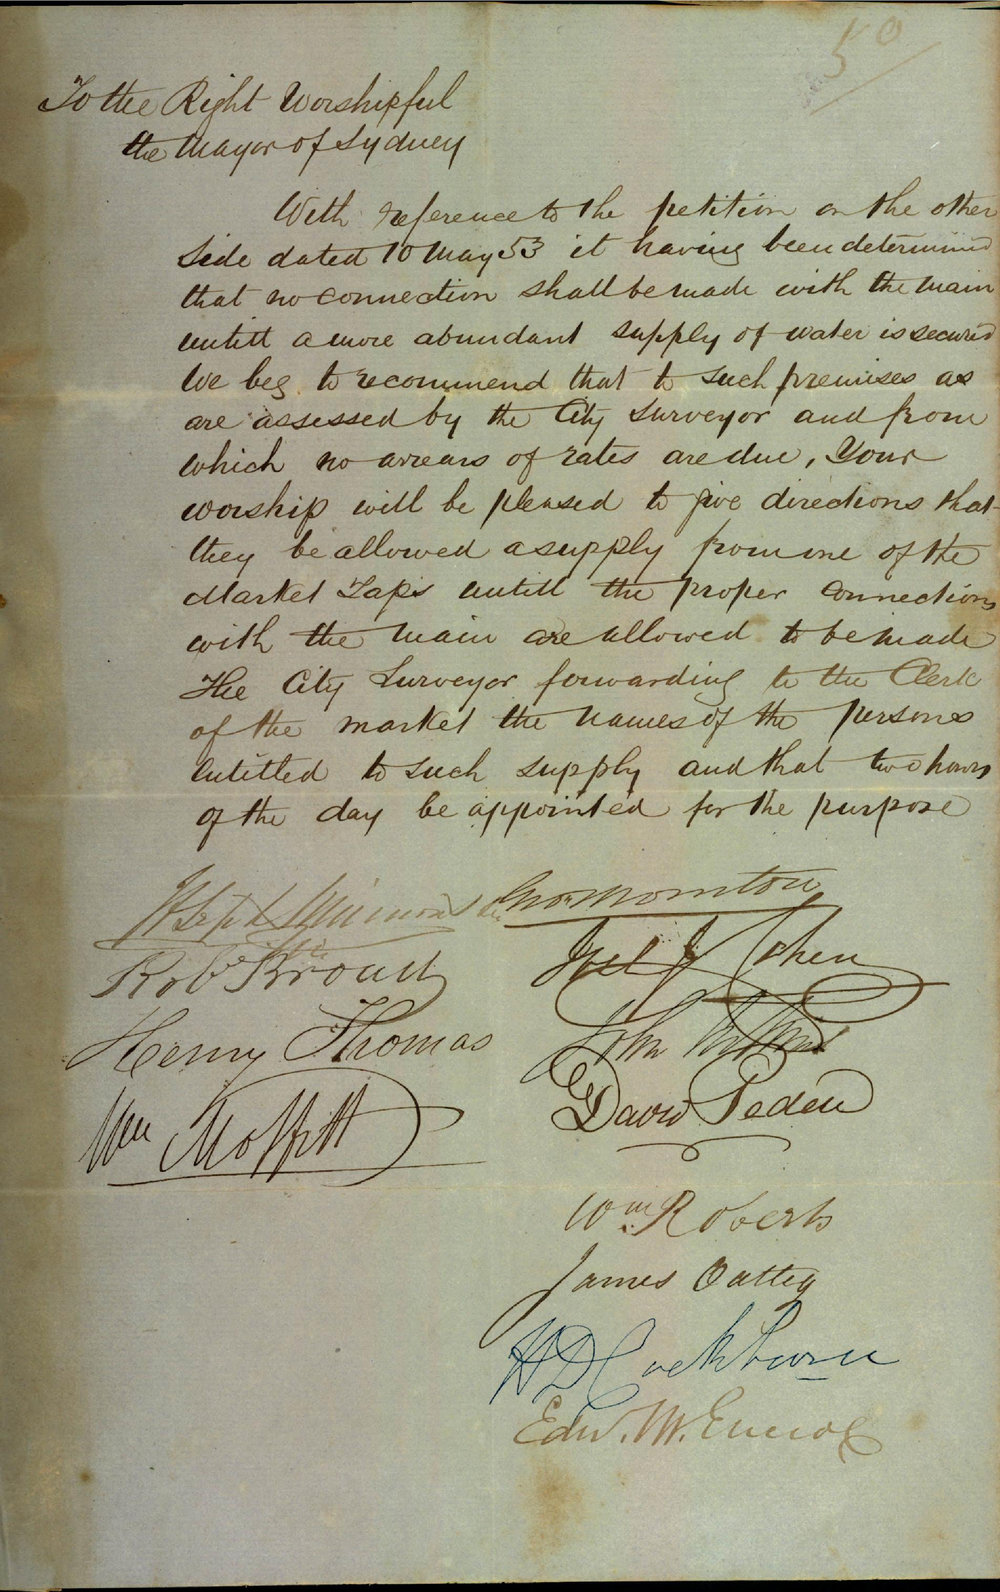 50
To the Right Worshipful
the Mayor of Sydney
With reference to the petition on the other
side dated 10 May 53 it having been determined
that no connection shall be made with the main
untill a more abundant supply of water is secured
We beg to recommend that to such premises as
are assessed by the City Surveyor and from
which no arrears of rates are due, Your
worship will be pleased to give directions that
they be allowed a supply from one of the
Market Taps untill the proper connections
with the main are allowed to be made
The City Surveyor forwarding to the Clerk
of the market the names of the persons
entitled to such supply and that two hours
of the day be appointed for the purpose
Geo Thornton
Joel J Cohen
Henry Thomas
John
Wm Moffitt
David Peden
Wm Roberts
James Oatley
H D Cockburn
Edw. M.